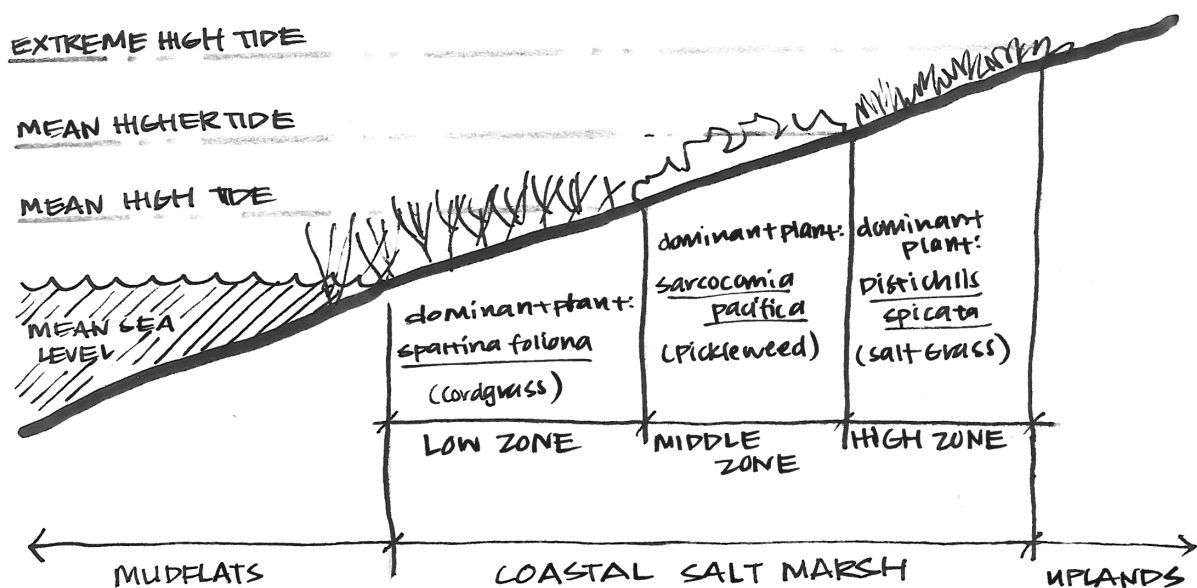 EXTREME HIGH TIDE
MEAN HIGHER TIDE
MEAN HIGH TIDE
MEAN SEA
LEVEL
dominant plant:
spartina foliona
(cordgrass)
dominant plant:
sarcocornia
pacifica
(pickleweed)
dominant
plant:
Distichlis
spicata
(salt Grass)
LOW ZONE
MIDDLE
ZONE
HIGH ZONE
MUDFLATS
COASTAL SALT MARSH
UPLANDS